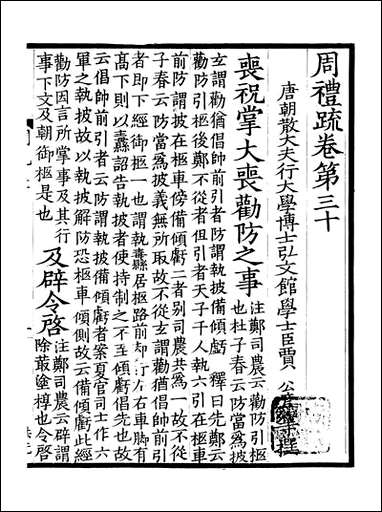 周禮疏卷第三十
唐朝散大夫行大學博士弘文館學士臣賈 公彥等撰
喪祝掌大喪勸防之事 注鄭司農云勸防引柩
也杜子春云防當爲披
玄謂勸猶倡帥前引者防謂執披備傾戲 釋曰先鄭云
勸防引柩後鄭不從者但引者天子千人執六引在柩車
前防謂披在柩車傍備傾虧二者別司農共爲一故不從
子春云防當爲披義無所取故不從玄謂勸猶倡帥前引
者即下經御柩一也謂執纛居柩路前却行左右車脚有
高下則以纛詔告執披者使持制之不至傾虧倡先也故
云倡帥前引者云防謂執披備傾虧者案夏官司士作六
軍之執披故以執披解防恐柩車傾側故云備傾虧此經
勸防因言所掌事及其行
事下文及朝御柩是也 及辟令啓 注鄭司農云辟謂
除菆塗椁也令啓